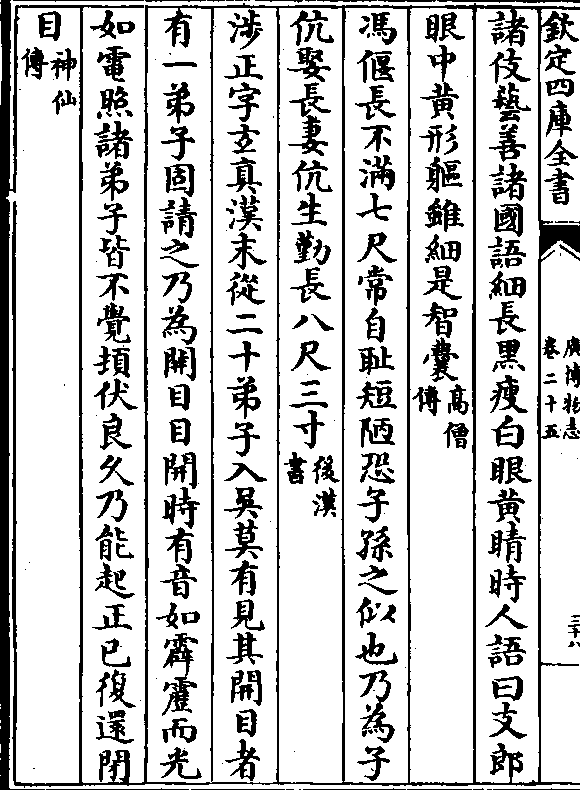 欽定四庫全書
廣博物志
卷二十五
三十八
諸伎藝善諸國語細長黑瘦白眼黄睛時人語曰支郎
眼中黄形軀雖細是智囊高僧傳
馮偃長不滿七尺常自耻短陋恐子孫之似也乃為子
伉娶長妻伉生勤長八尺三寸後漢書
涉正字玄真漢末從二十弟子入吳莫有見其開目者
有一弟子固請之乃為開目目開時有音如霹靂而光
如電照諸弟子皆不覺頓伏良久乃能起正已復還閉
目神仙傳